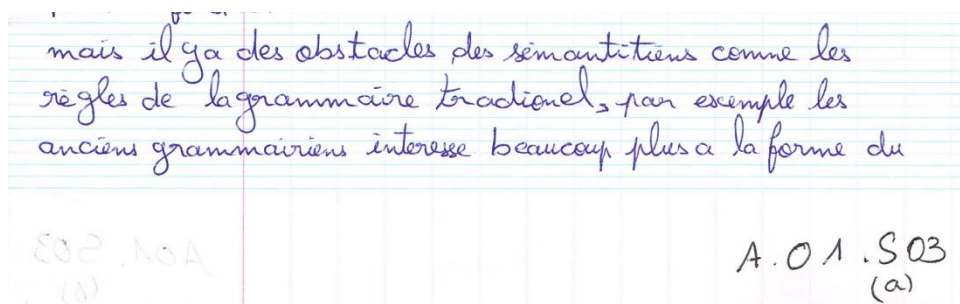 mais il ya des obstacles des sémantitiens comme les
règles de la grammaire tradionel, par exemple les
anciens grammairiens interesse beaucoup plus a la forme du
A.01.S03
(a)